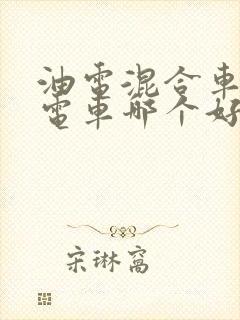 油電混合車
電車哪个好
宋琳窩